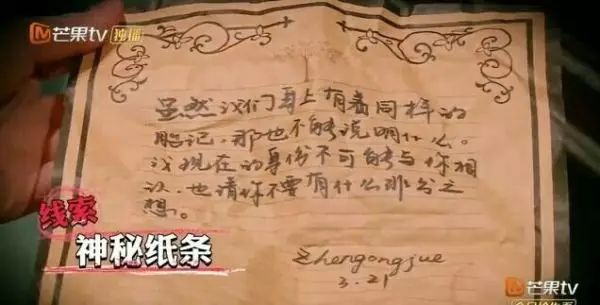 芒果tv 独播
虽然我们身上有着同样的
胎记，那也不能说明什么。
我现在的身份不可能与你相
认，也请你不要有什么非分之
想。
Zhengongjue
3.21
线索
神秘纸条
芒果tv